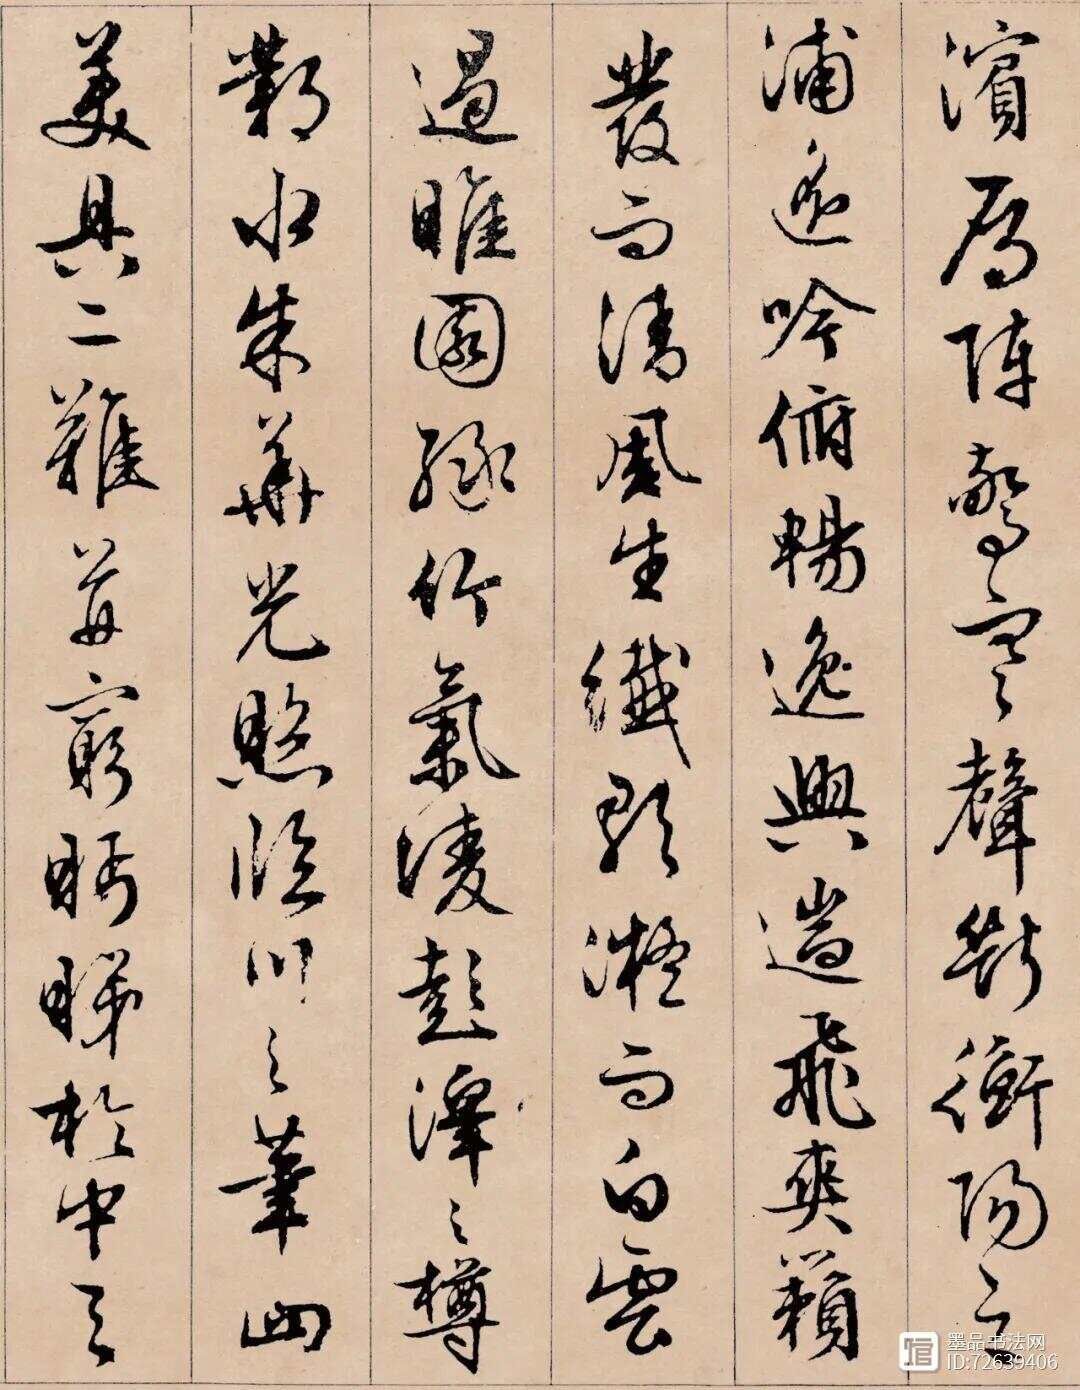 濱鴈陣驚寒聲斷衡陽之
浦遥吟俯暢逸興遄飛爽籟
發而清風生纖歌凝而白雲
遏睢園綠竹氣凌彭澤之樽
鄴水朱華光照臨川之筆四
美具二難并窮睇眄於中天
墨品书法网
ID:72639406